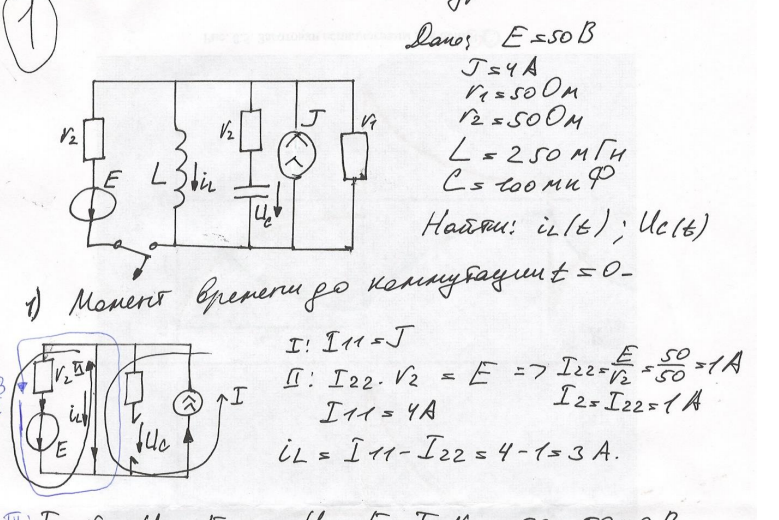 1
Дано: E = 50 В
J = 4 А
r1 = 50 Ом
r2 = 50 Ом
L = 250 мГн
C = 100 мкФ
Найти: iL(t); Uc(t)
r2
L
iL
r2
Uc
J
r1
E
1) Момент времени до коммутации t = 0-
I: I11 = J
II: I22 · r2 = E => I22 = E/r2 = 50/50 = 1 А
I11 = 4А
I2 = I22 = 1 А
iL = I11 - I22 = 4 - 1 = 3 А.
r2
II
iL
E
Uc
I